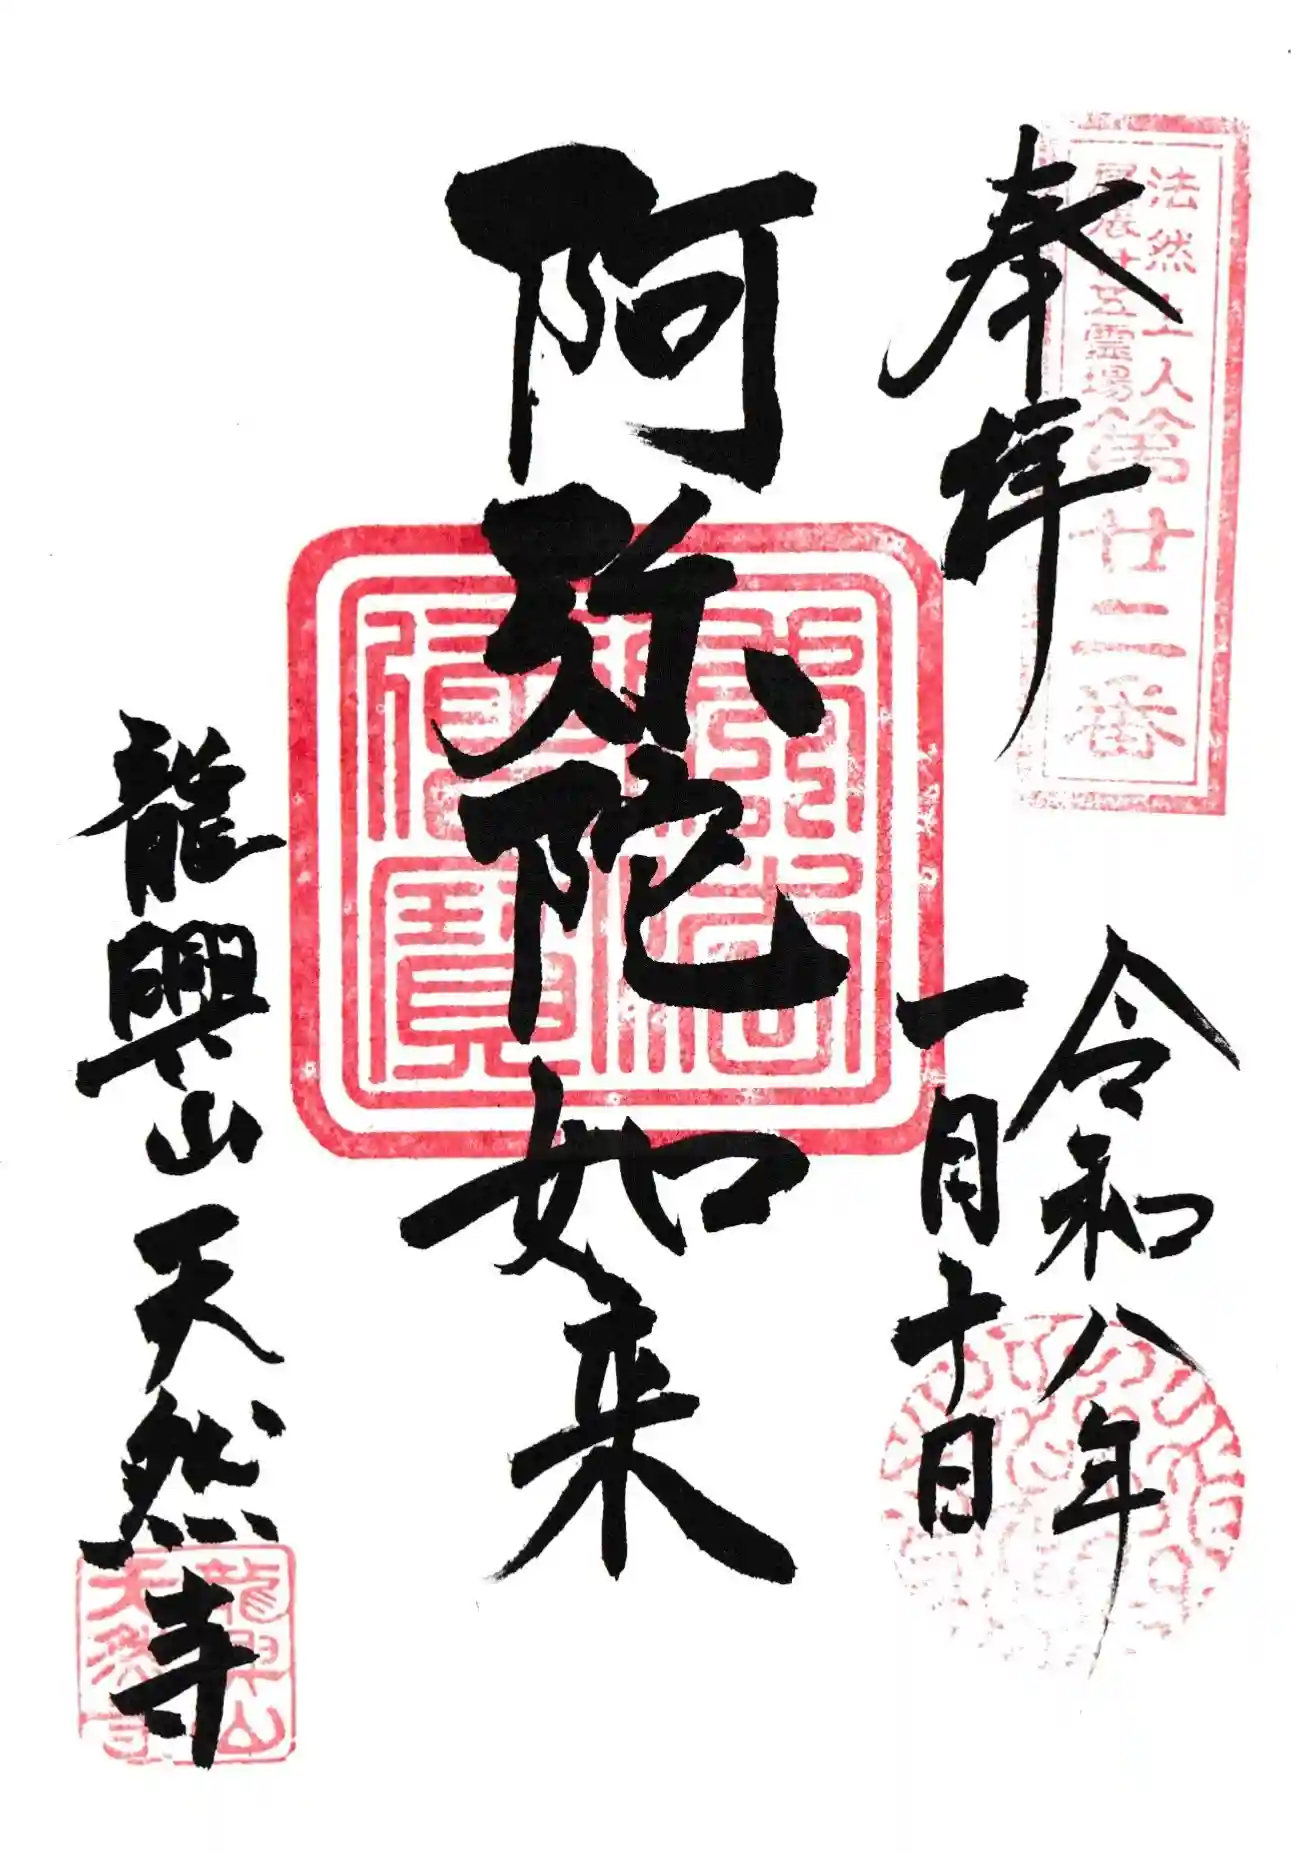 奉拝
法然上人
廿五霊場
第廿二番
令和八年
一月十日
阿弥陀如来
佛法僧寶
龍興山天然寺
龍興山
天然寺